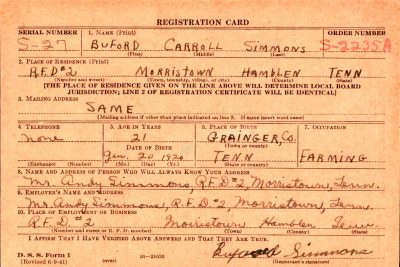 REGISTRATION CARD
SERIAL NUMBER 1. NAME (Print) ORDER NUMBER
S-27 BUFORD CARROLL SIMMONS S-2235A
(First) (Middle) (Last)
2. PLACE OF RESIDENCE (Print)
R.F.D #2 MORRISTOWN HAMBLEN TENN
(Number and street) (Town, township, village, or city) (County) (State)
[THE PLACE OF RESIDENCE GIVEN ON THE LINE ABOVE WILL DETERMINE LOCAL BOARD
JURISDICTION; LINE 2 OF REGISTRATION CERTIFICATE WILL BE IDENTICAL]
3. MAILING ADDRESS
SAME
[Mailing address if other than place indicated on line 2. If same insert word same]
4. TELEPHONE 5. AGE IN YEARS 6. PLACE OF BIRTH 7. OCCUPATION
none 21 GRAINGER, Co.
DATE OF BIRTH (Town or county)
Jan. 20 1920 TENN FARMING
(Exchange) (Number) (Mo.) (Day) (Yr.) (State or country)
8. NAME AND ADDRESS OF PERSON WHO WILL ALWAYS KNOW YOUR ADDRESS
Mr. Andy Simmons, R.F.D #2, Morristown, Tenn.
9. EMPLOYER'S NAME AND ADDRESS
Mr. Andy Simmons, R.F.D #2, Morristown, Tenn.
10. PLACE OF EMPLOYMENT OR BUSINESS
R.F.D #2 Morristown Hamblen Tenn
(Number and street or R. F. D. number) (Town) (County) (State)
I AFFIRM THAT I HAVE VERIFIED ABOVE ANSWERS AND THAT THEY ARE TRUE.
D. S. S. Form 1 Buford Simmons
(Revised 6-9-41) (over) 16—21630 (Registrant's signature)